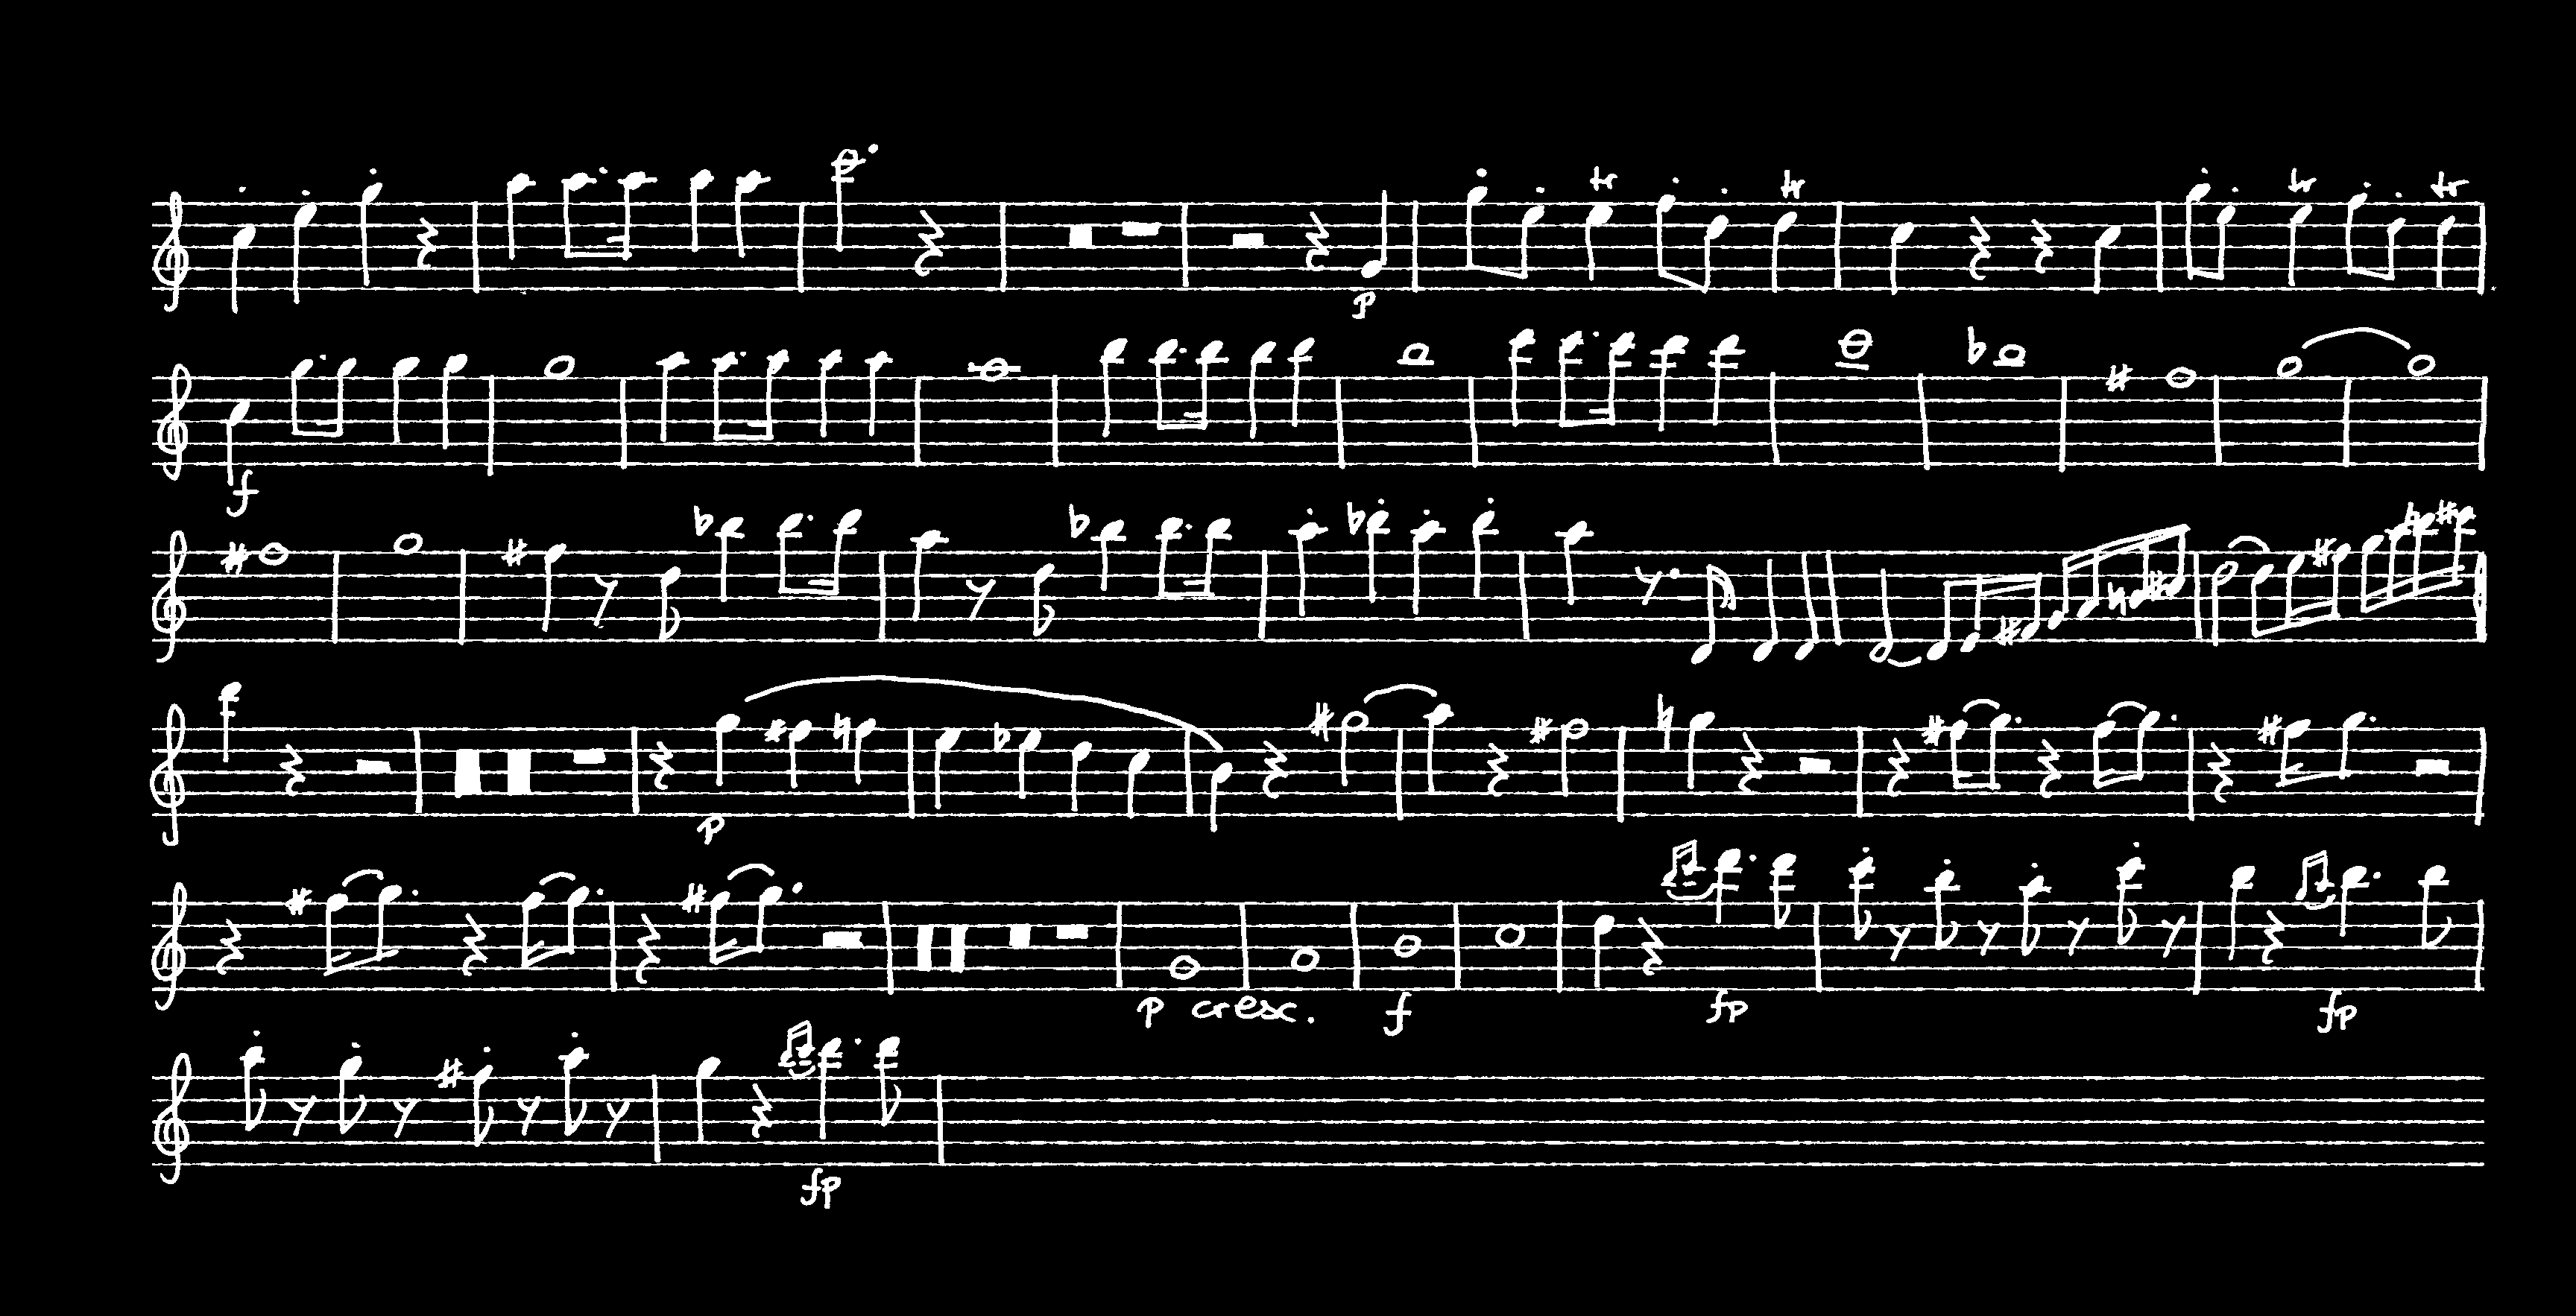 tr tr tr tr
p
f
p
p cresc. f fp fp
fp